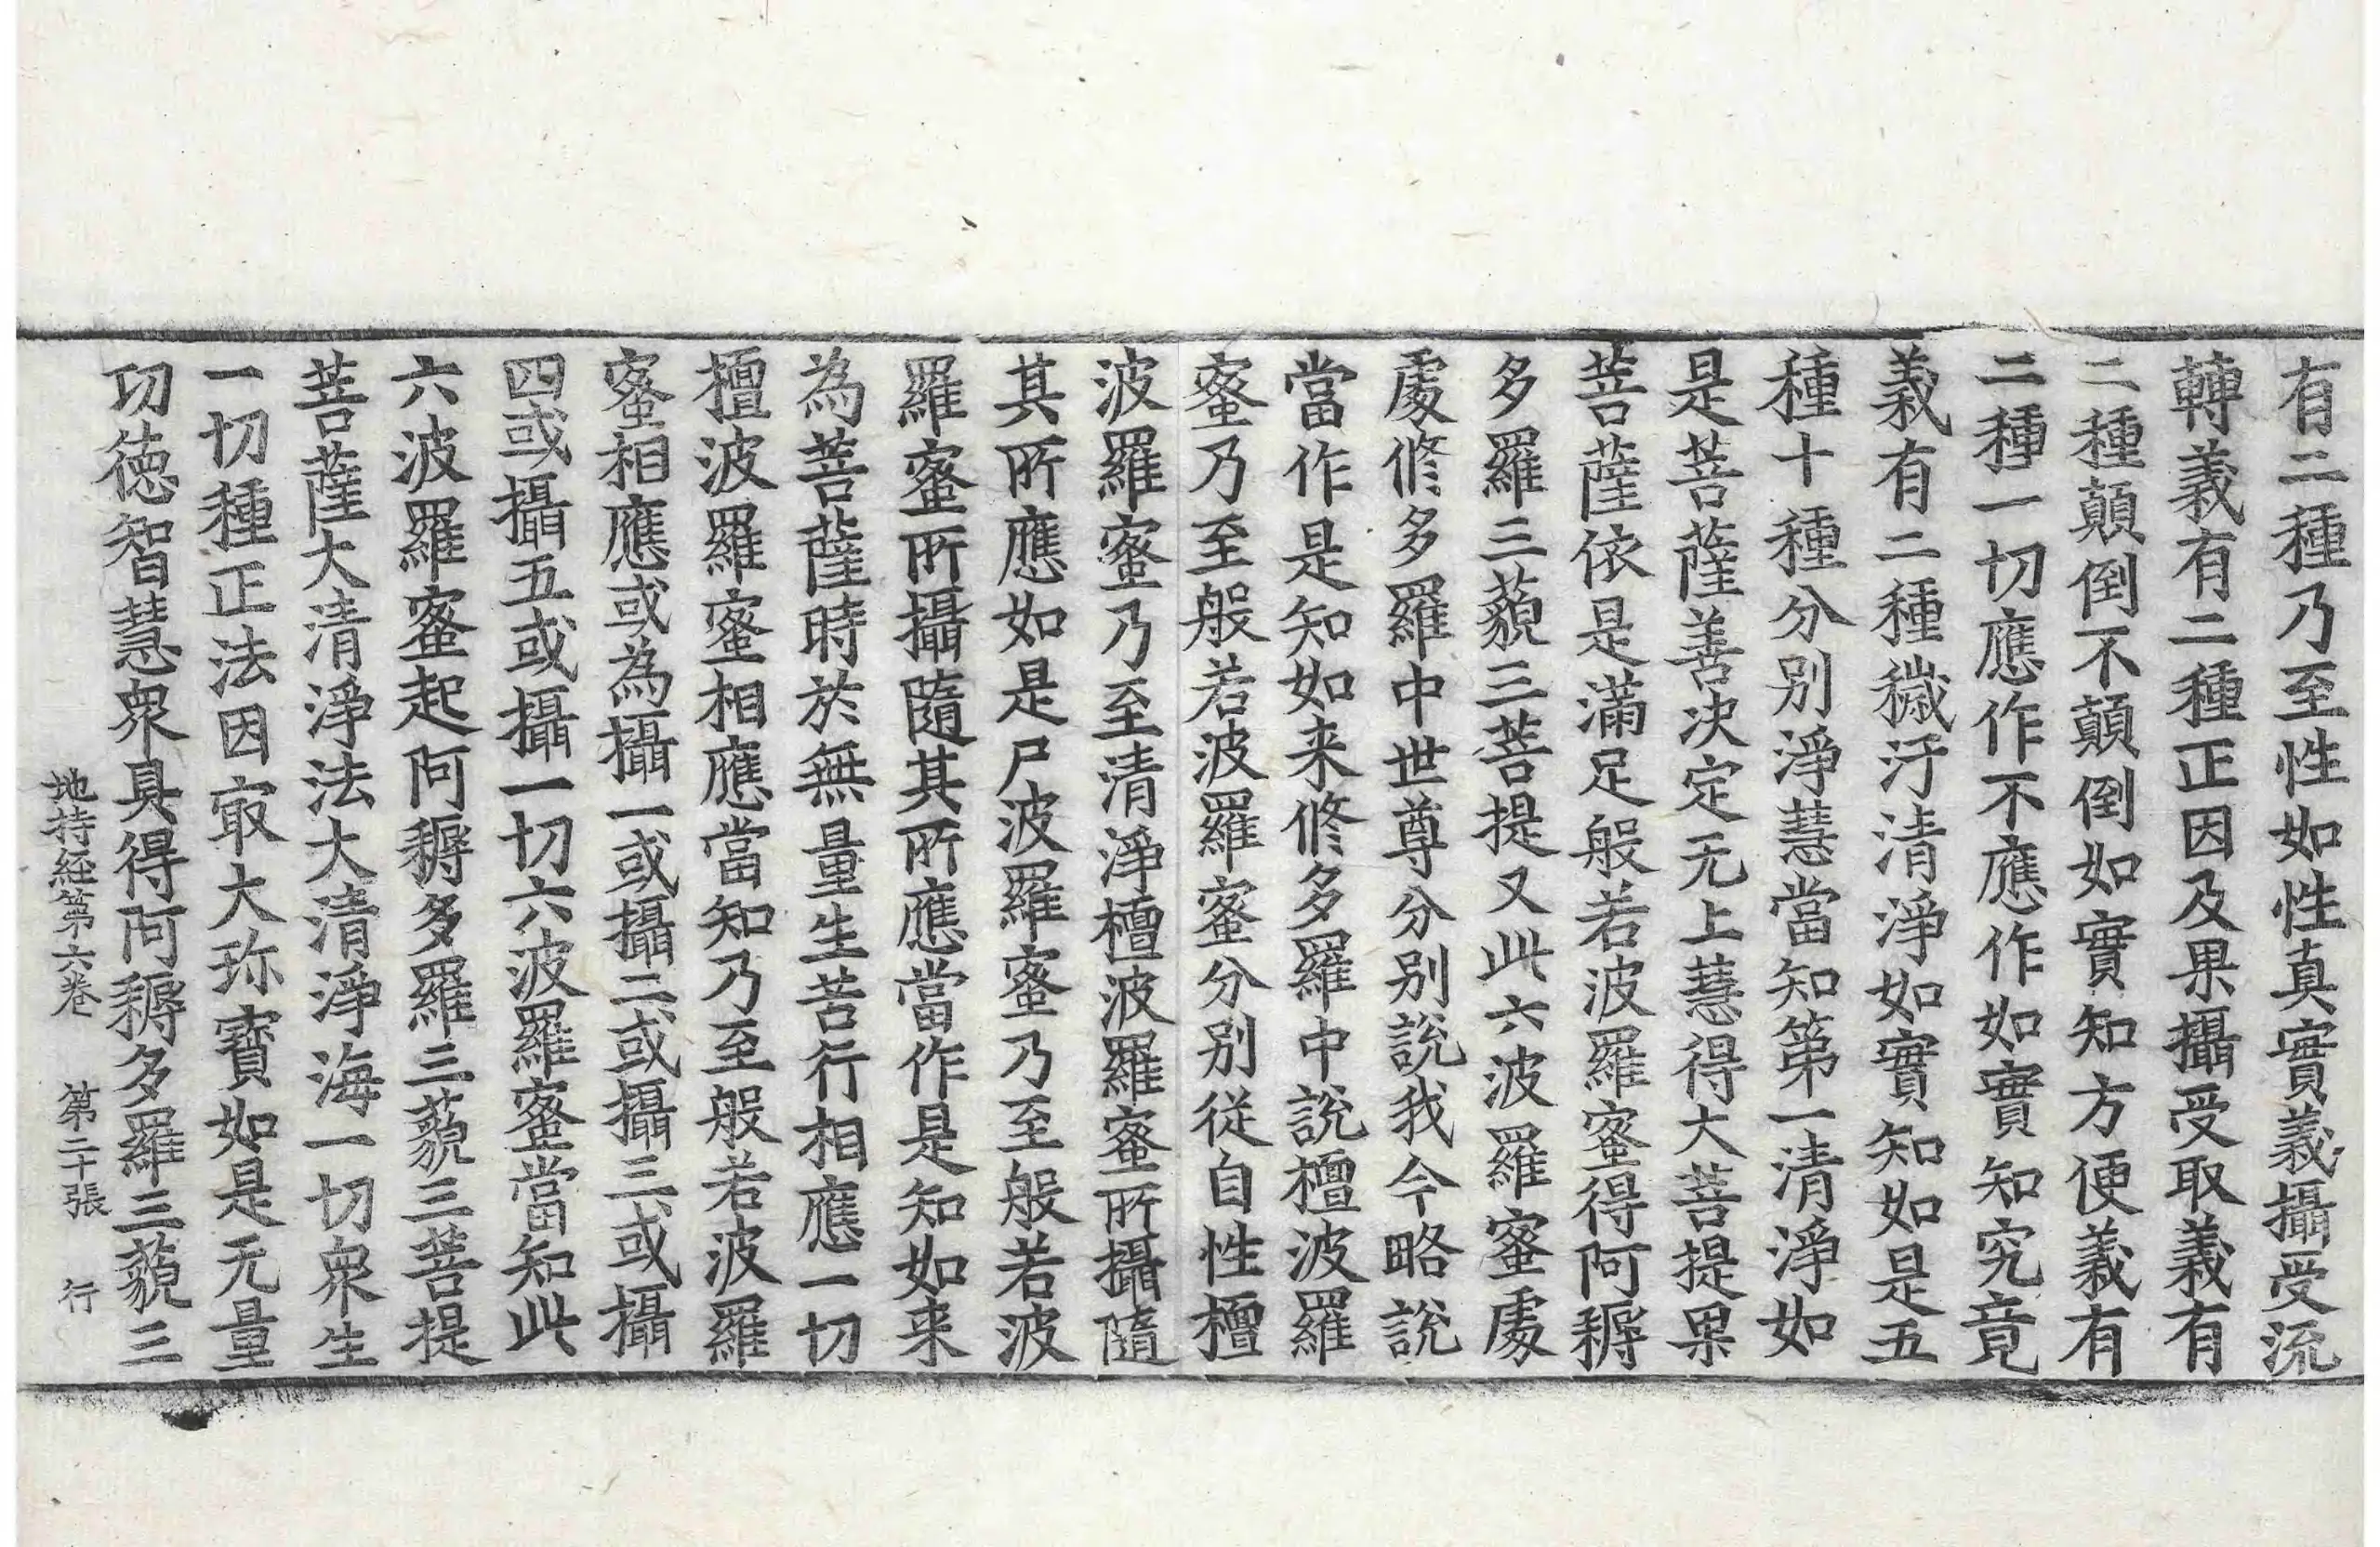 有二種乃至性如性真實義攝受流
轉義有二種正因及果攝受取義有
二種顛倒不顛倒如實知方便義有
二種一切應作不應作如實知究竟
義有二種穢汙清淨如實知如是五
種十種分別淨慧當知第一清淨如
是菩薩善決定无上慧得大菩提果
菩薩依是滿足般若波羅蜜得阿耨
多羅三藐三菩提又此六波羅蜜處
處修多羅中世尊分別說我今略說
當作是知如来修多羅中說檀波羅
蜜乃至般若波羅蜜分別從自性檀
波羅蜜乃至清淨檀波羅蜜所攝隨
其所應如是尸波羅蜜乃至般若波
羅蜜所攝隨其所應當作是知如来
為菩薩時於無量生苦行相應一切
檀波羅蜜相應當知乃至般若波羅
蜜相應或為攝一或攝二或攝三或攝
四或攝五或攝一切六波羅蜜當知此
六波羅蜜起阿耨多羅三藐三菩提
菩薩大清淨法大清淨海一切衆生
一切種正法因㝡大珎寶如是无量
功德智慧衆具得阿耨多羅三藐三
地持経第六卷　第二十張　行